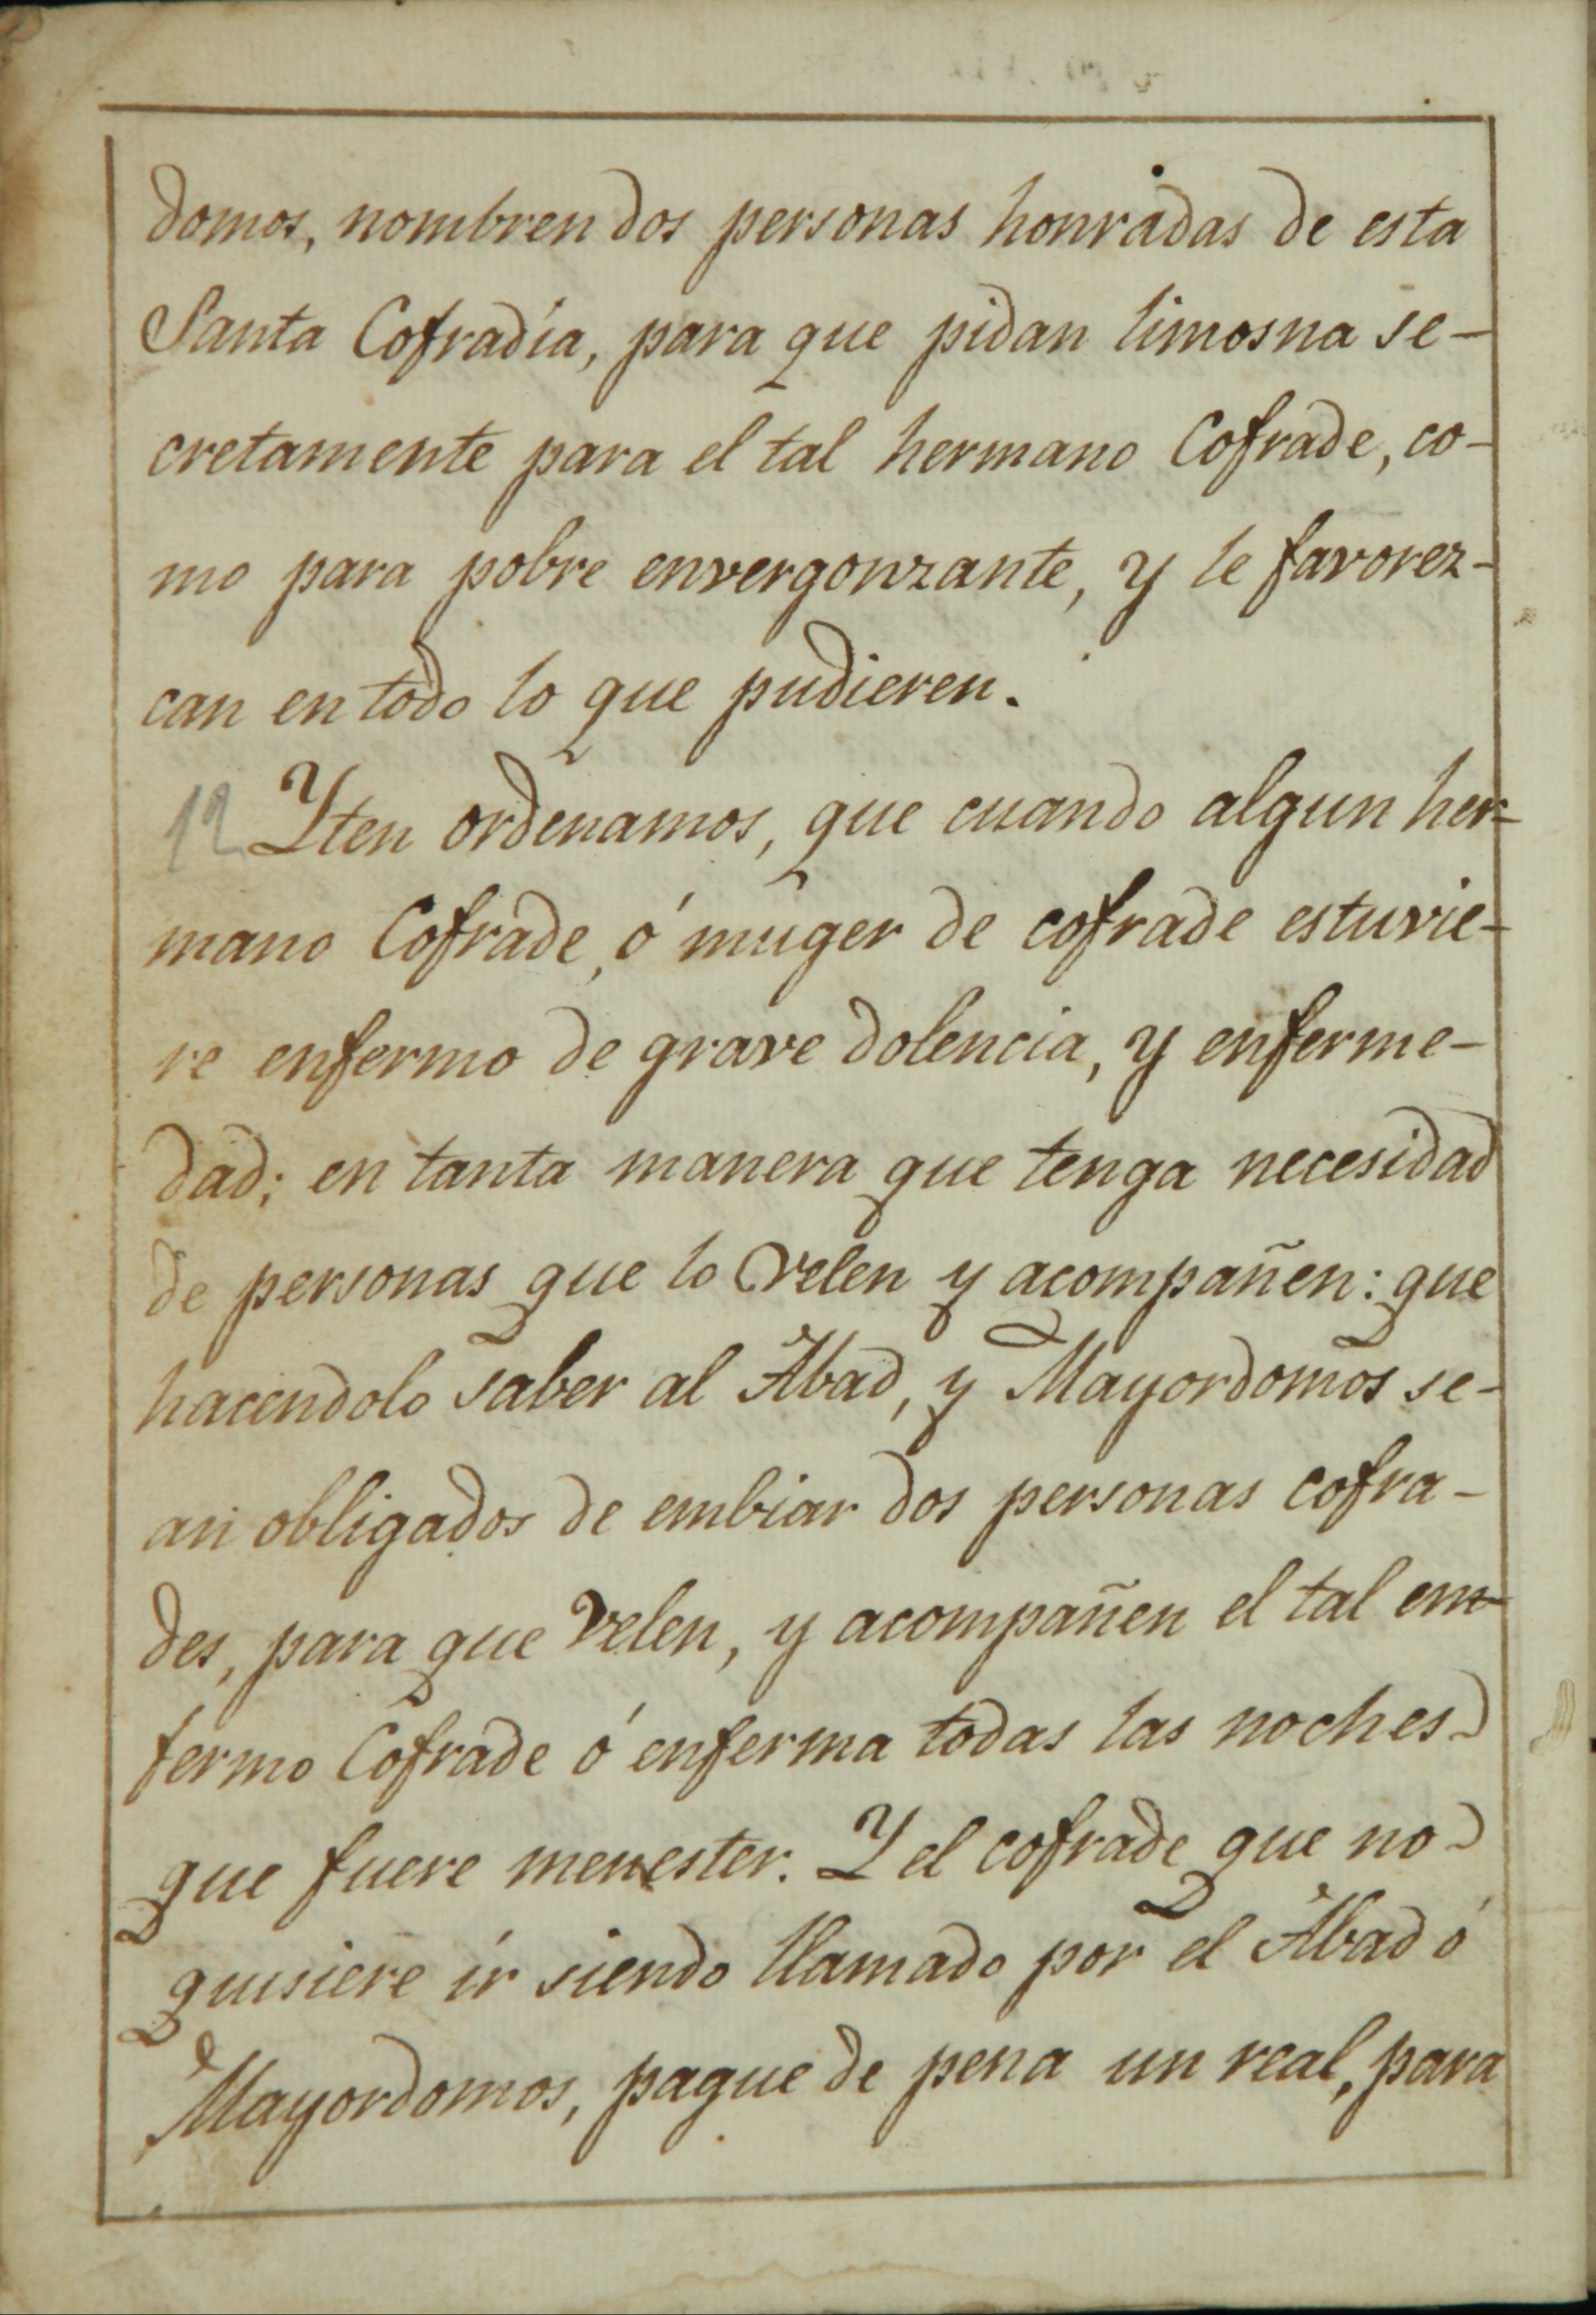 domos, nombren dos personas honradas de esta
Santa Cofradía, para que pidan limosna se-
cretamente para el tal hermano Cofrade, co-
mo para pobre envergonzante, y le favorez-
can en todo lo que pudieren.
12 Yten ordenamos, que cuando algun her-
mano Cofrade, ó muger de cofrade estuvie-
re enfermo de grave dolencia, y enferme-
dad; en tanta manera que tenga necesidad
de personas que lo velen y acompañen: que
hacendolo saber al Abad, y Mayordomos se-
an obligados de embiar dos personas cofra-
des, para que velen, y acompañen el tal em-
fermo Cofrade ó enferma todas las noches
que fuere menester. Y el cofrade que no
quisiere ír siendo llamado por el Abad ó
Mayordomos, pague de pena un real, para